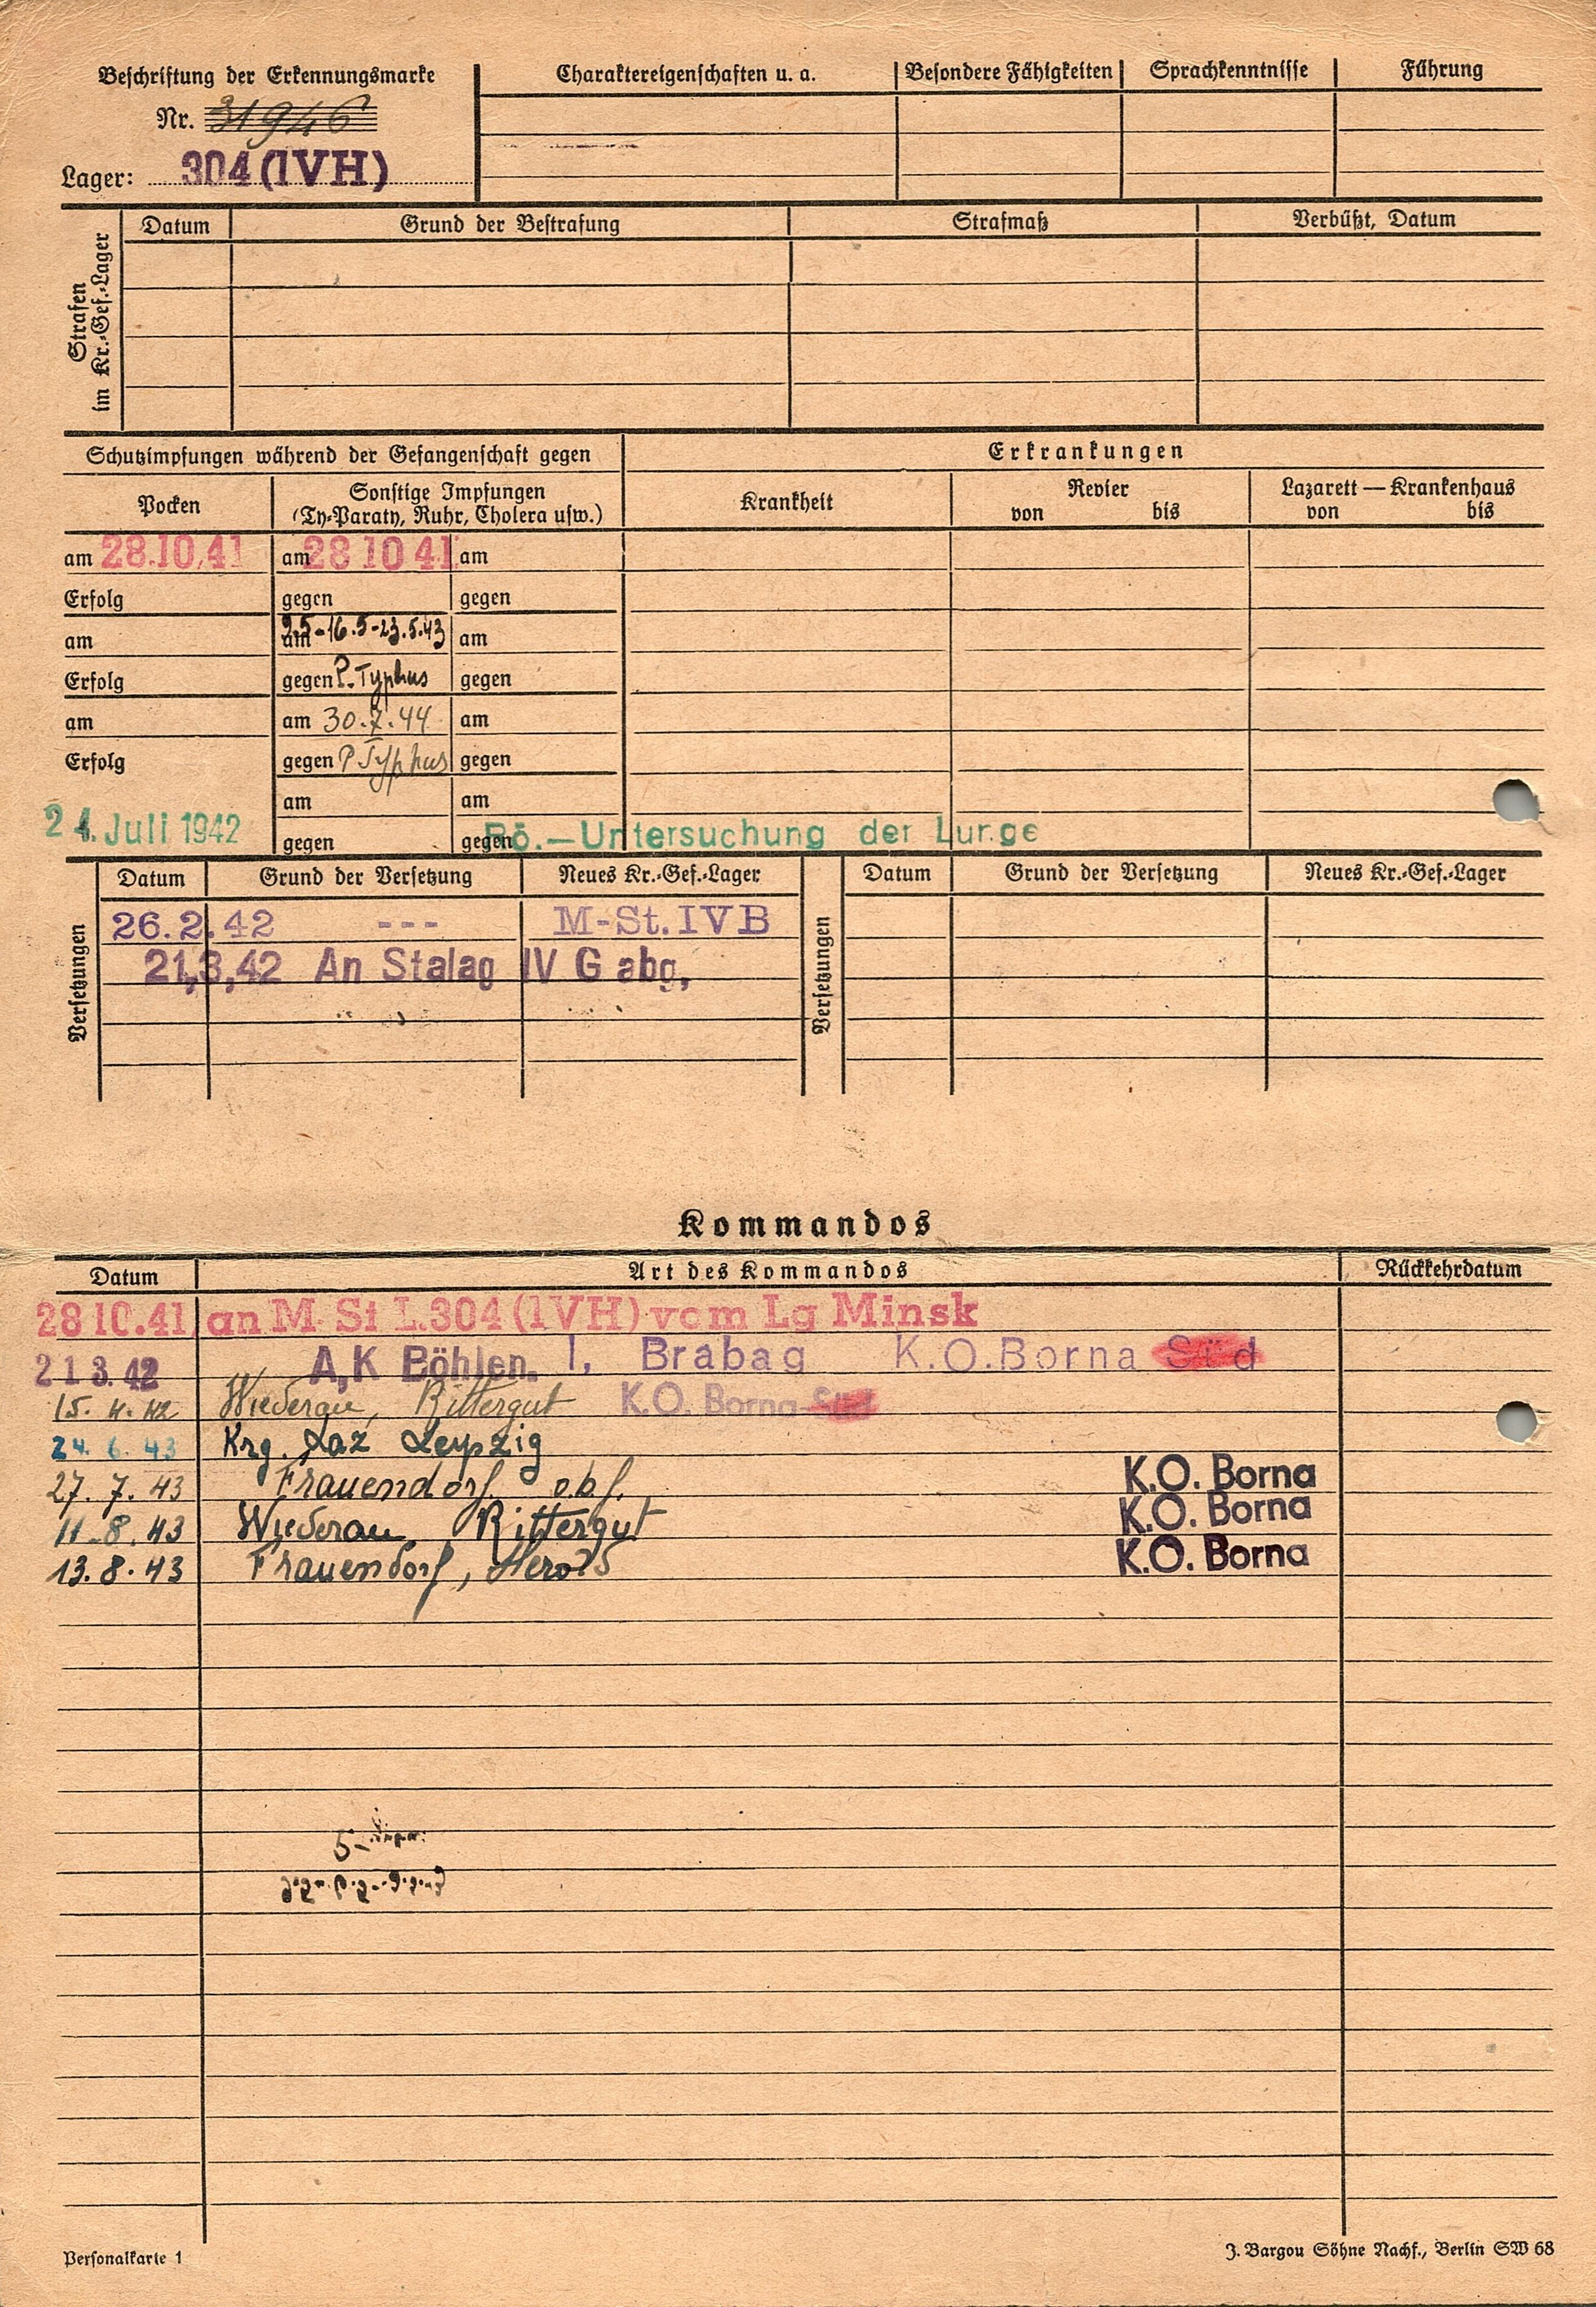 Beschriftung der Erkennungsmarke
Nr. 31946
Lager: 304 (IVH)
Charaktereigenschaften u. a. Besondere Fähigkeiten Sprachkenntnisse Führung
Strafen im Kr.-Gef.-Lager
Datum Grund der Bestrafung Strafmaß Verbüßt, Datum
Schutzimpfungen während der Gefangenschaft gegen Erkrankungen
Pocken Sonstige Impfungen Krankheit Revier Lazarett — Krankenhaus
(Ty-Paraty, Ruhr, Cholera usw.) von bis von bis
am 28.10.41 am 28 10 41 am
Erfolg gegen gegen
am am 9.5-16.5-23.5.43 am
Erfolg gegen P. Typhus gegen
am am 30.7.44 am
Erfolg gegen P Typhus gegen
am am
24. Juli 1942 gegen gegen Rö.—Untersuchung der Lunge
Versetzungen
Datum Grund der Versetzung Neues Kr.-Gef.-Lager
26.2.42 --- M-St. IV B
21,3,42 An Stalag IV G abg,
Versetzungen
Datum Grund der Versetzung Neues Kr.-Gef.-Lager
Kommandos
Datum Art des Kommandos Rückkehrdatum
28 10.41 an M. St L.304 (IVH) vom Lg Minsk
21 3. 42 A,K Böhlen. I, Brabag K.O. Borna Süd
15. 4. 42 Wiederau, Rittergut K.O. Borna-Süd
24. 6. 43 Krg. Laz Leipzig
27. 7. 43 Frauendorf o.b.f. K.O. Borna
11. 8. 43 Wiederau Rittergut K.O. Borna
13. 8. 43 Frauendorf, Herold K.O. Borna
Personalkarte 1 J. Bargou Söhne Nachf., Berlin SW 68